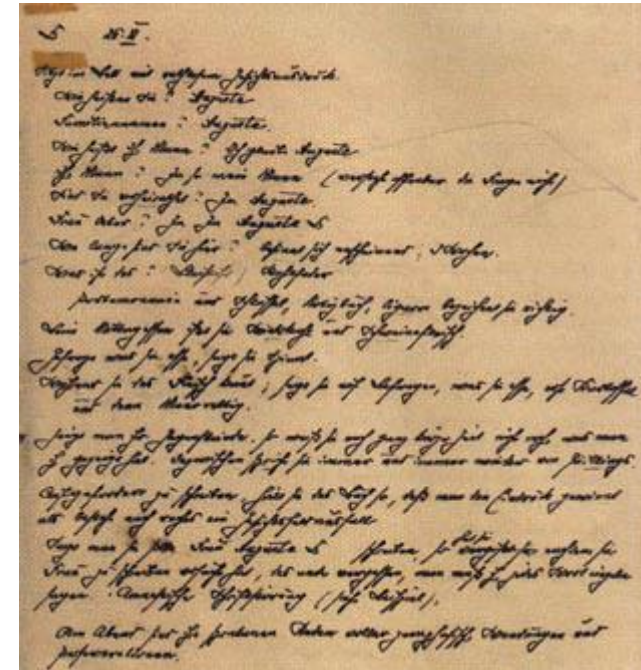 D 26. XI.
Sitzt im Bett mit ratlosem Gesichtsausdruck.
Wie heissen Sie? Auguste
Familienname? Auguste.
Wie heisst Ihr Mann? Ich glaube Auguste
Ihr Mann? Ja so mein Mann (versteht offenbar die Frage nicht)
Sind Sie verheiratet? Zu Auguste.
Frau D? Ja zu Auguste D
Wie lange sind Sie hier? sich 3 Wochen.
Was ist das? Bleistift
Portemonnaie und Schlüssel, Tagebuch, Cigarre bezeichnet sie richtig.
Beim Mittagessen isst sie und Schweinefleisch.
Gefragt was sie esse, sagt sie Spinat.
das Fleisch kaut; sagt sie auf Befragen, was sie esse, esse Kartoffel
und dann Meerrettig.
Zeigt man ihr Gegenstände, so weiss sie nach ganz kurzer Zeit nicht mehr was man
ihr gezeigt hat. Dazwischen spricht sie immer und immer wieder von
Aufgefordert zu schreiben, hält sie das Buch so, dass man den Eindruck gewinnt
als besteht nach rechts ein Gesichtsfeldausfall
Frau Auguste D schreiben, so
Frau zu schreiben versucht hat, das andere vergessen, man muss ihr jedes Wort
sagen. Amnestische Schriftstörung
Am Abend sind ihre spontanen Reden voller paraphasischer Wendungen und
Perseverationen.